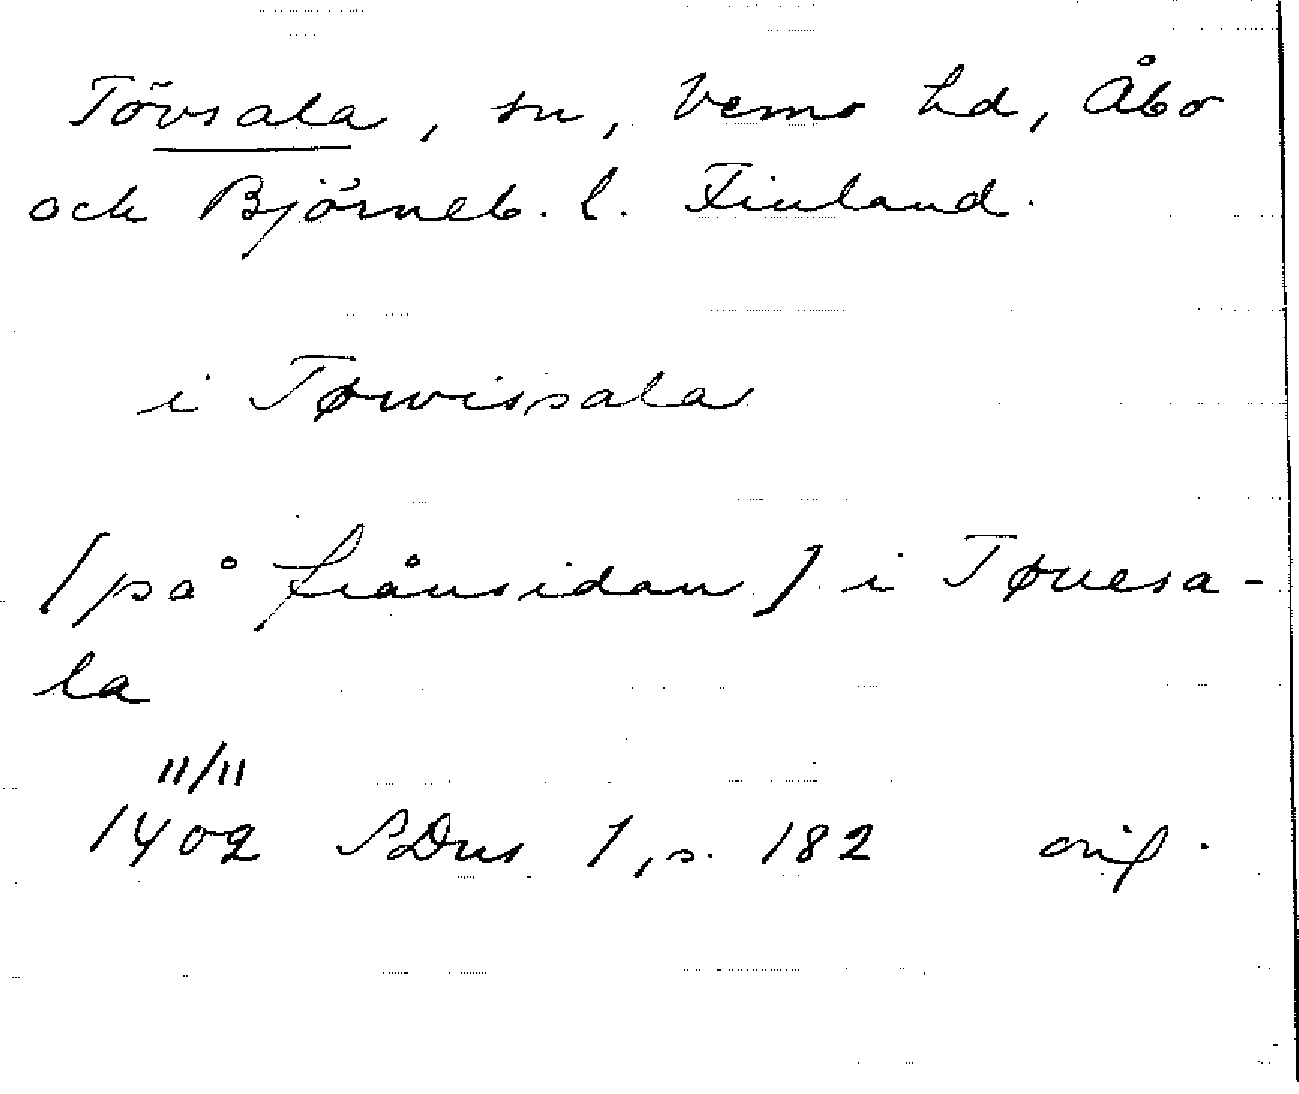 Tövsala, sn, Vemo hd, Åbo
och Björneb. l. Finland.
i Tørvissala
[på frånsidan] i Tøuesa-
la
11/11
1402 SDns 1, s. 182 orig.